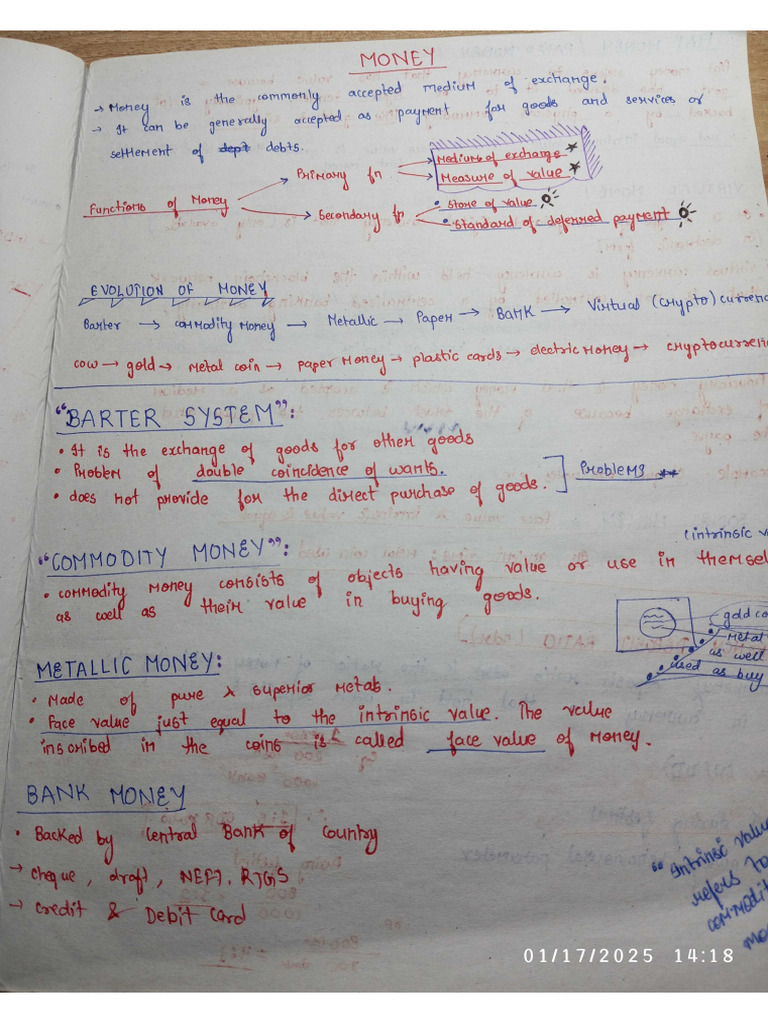 MONEY
→ Money is the commonly accepted medium of exchange.
→ It can be generally accepted as payment for goods and services or
settlement of dept debts.
Functions of Money
Primary fn
Medium of exchange
Measure of value
Secondary fn
• Store of value.
• Standard of deferred payment
EVOLUTION OF MONEY
Barter → commodity Money → Metallic → Paper → Bank → Virtual (crypto) curren
cow → gold → Metal coin → paper Money → plastic cards → electric Money → cryptocurren
"BARTER SYSTEM":
• It is the exchange of goods for other goods
• Problem of double coincidence of wants.
• does not provide for the direct purchase of goods.
Problems
"COMMODITY MONEY":
(intrinsic v
• commodity Money consists of objects having value or use in themsel
as well as their value in buying goods.
gold co
Metal
as well
used as buy
METALLIC MONEY:
• Made of pure & superior metals.
• Face value just equal to the intrinsic value. The value
inscribed in the coins is called face value of Money.
BANK MONEY
• Backed by Central Bank of Country
→ cheque, draft, NEFT, RTGS
→ credit & Debit card
"Intrinsic value
refers to
commodit
mo
01/17/2025 14:18